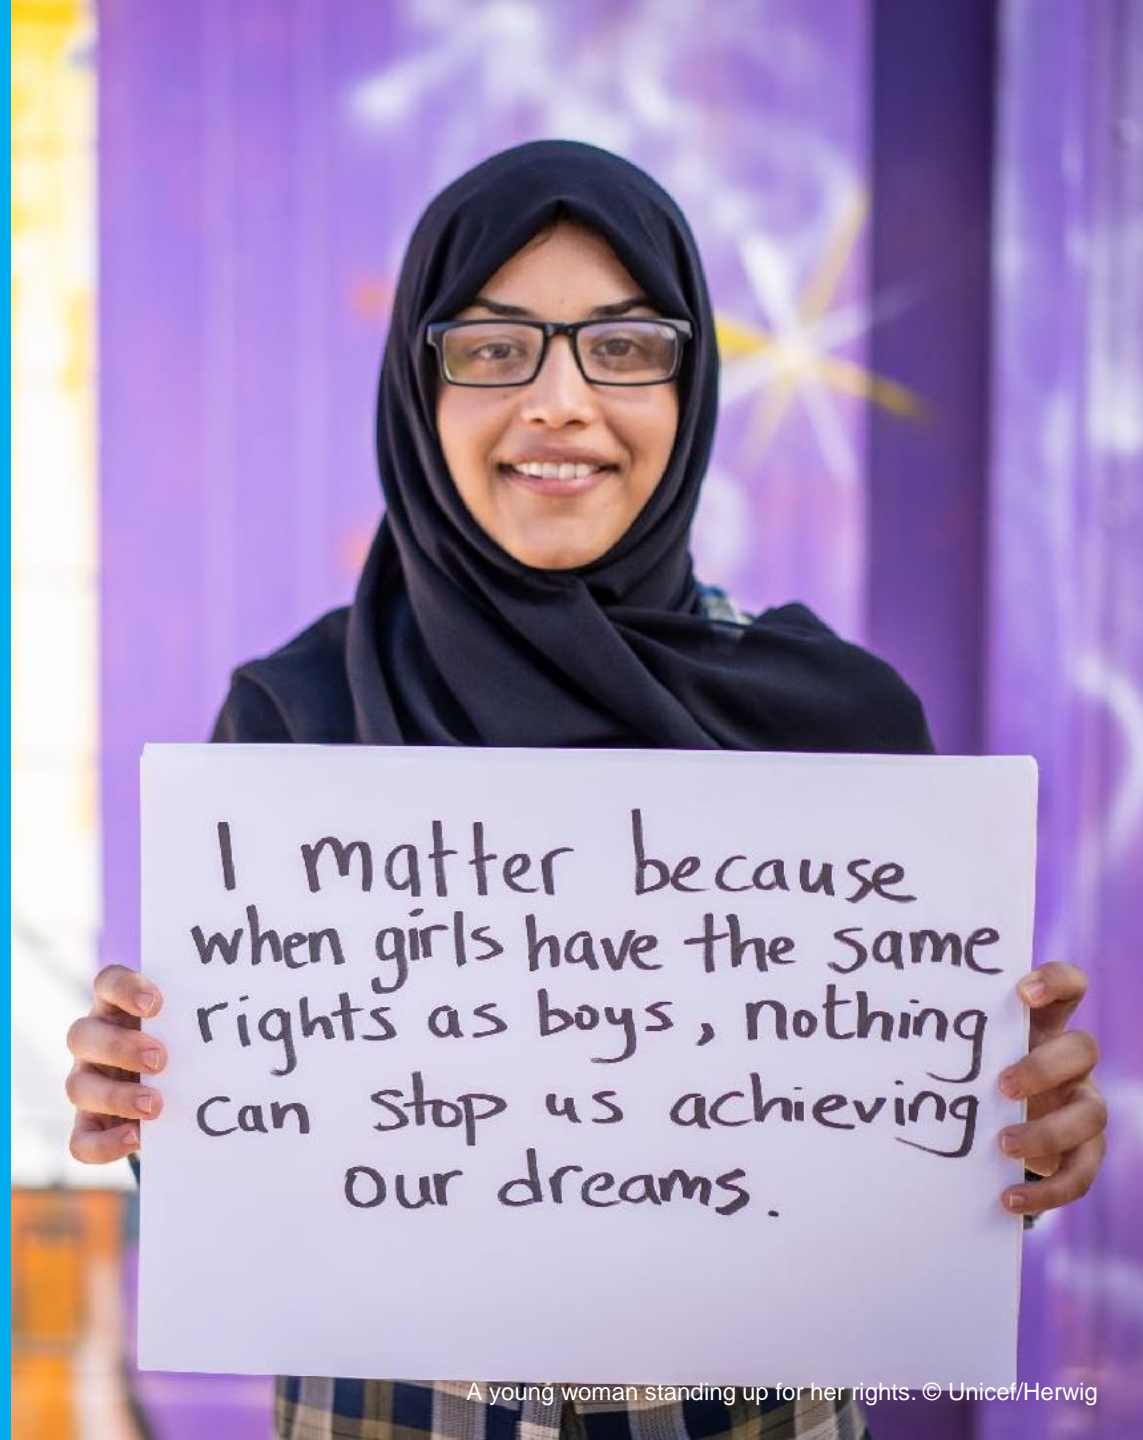 I matter because
when girls have the same
rights as boys, nothing
can stop us achieving
our dreams.
A young woman standing up for her rights. © Unicef/Herwig